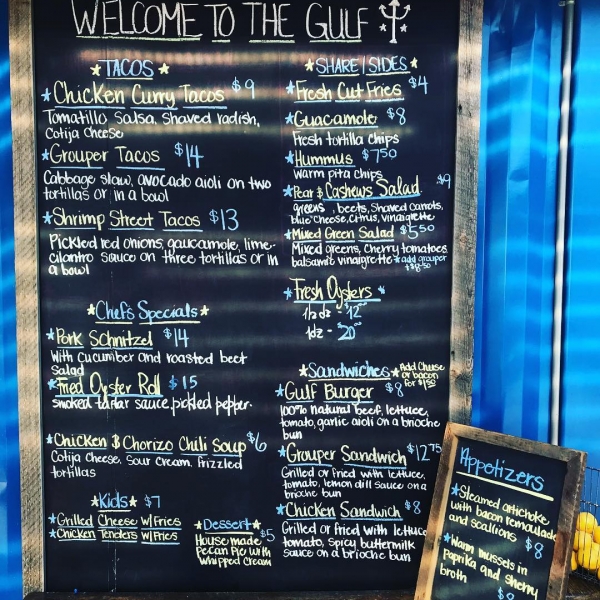 WELCOME TO THE GULF
TACOS
Chicken Curry Tacos $9
Tomatillo Salsa, Shaved radish,
Cotija Cheese
Grouper Tacos $14
Cabbage slaw, avocado aioli on two
tortillas or in a bowl
Shrimp Street Tacos $13
Pickled red onions, guacamole, lime-
cilantro sauce on three tortillas or in
a bowl
Chef's Specials
Pork Schnitzel $14
With cucumber and roasted beet
Salad
Fried Oyster Roll $15
smoked tartar sauce, pickled pepper.
Chicken & Chorizo Chili Soup $6
Cotija Cheese, Sour Cream, Frizzled
tortillas
Kids $7
Grilled Cheese w/Fries
Chicken Tenders w/Fries
Dessert $5
House made
Pecan Pie with
Whipped Cream
SHARE/SIDES
Fresh Cut Fries $4
Guacamole $8
Fresh tortilla chips
Hummus $7.50
warm pita chips
Pear & Cashews Salad $9
greens, beets, Shaved Carrots,
blue cheese, citrus, vinaigrette
Mixed Green Salad $5.50
Mixed greens, Cherry tomatoes
balsamic vinaigrette *add grouper
+$8.50
Fresh Oysters
1/2 dz - $12
1dz - $20
Sandwiches
Add Cheese
or bacon
for $1.50
Gulf Burger $8
100% natural beef, lettuce,
tomato, garlic aioli on a brioche
bun
Grouper Sandwich $12.75
Grilled or fried with lettuce,
tomato, lemon dill sauce on a
brioche bun
Chicken Sandwich $8
Grilled or fried with lettuce
tomato, spicy buttermilk
sauce on a brioche bun
Appetizers
Steamed artichoke
with bacon remoulade
and scallions $8
Warm mussels in
paprika and sherry
broth $8